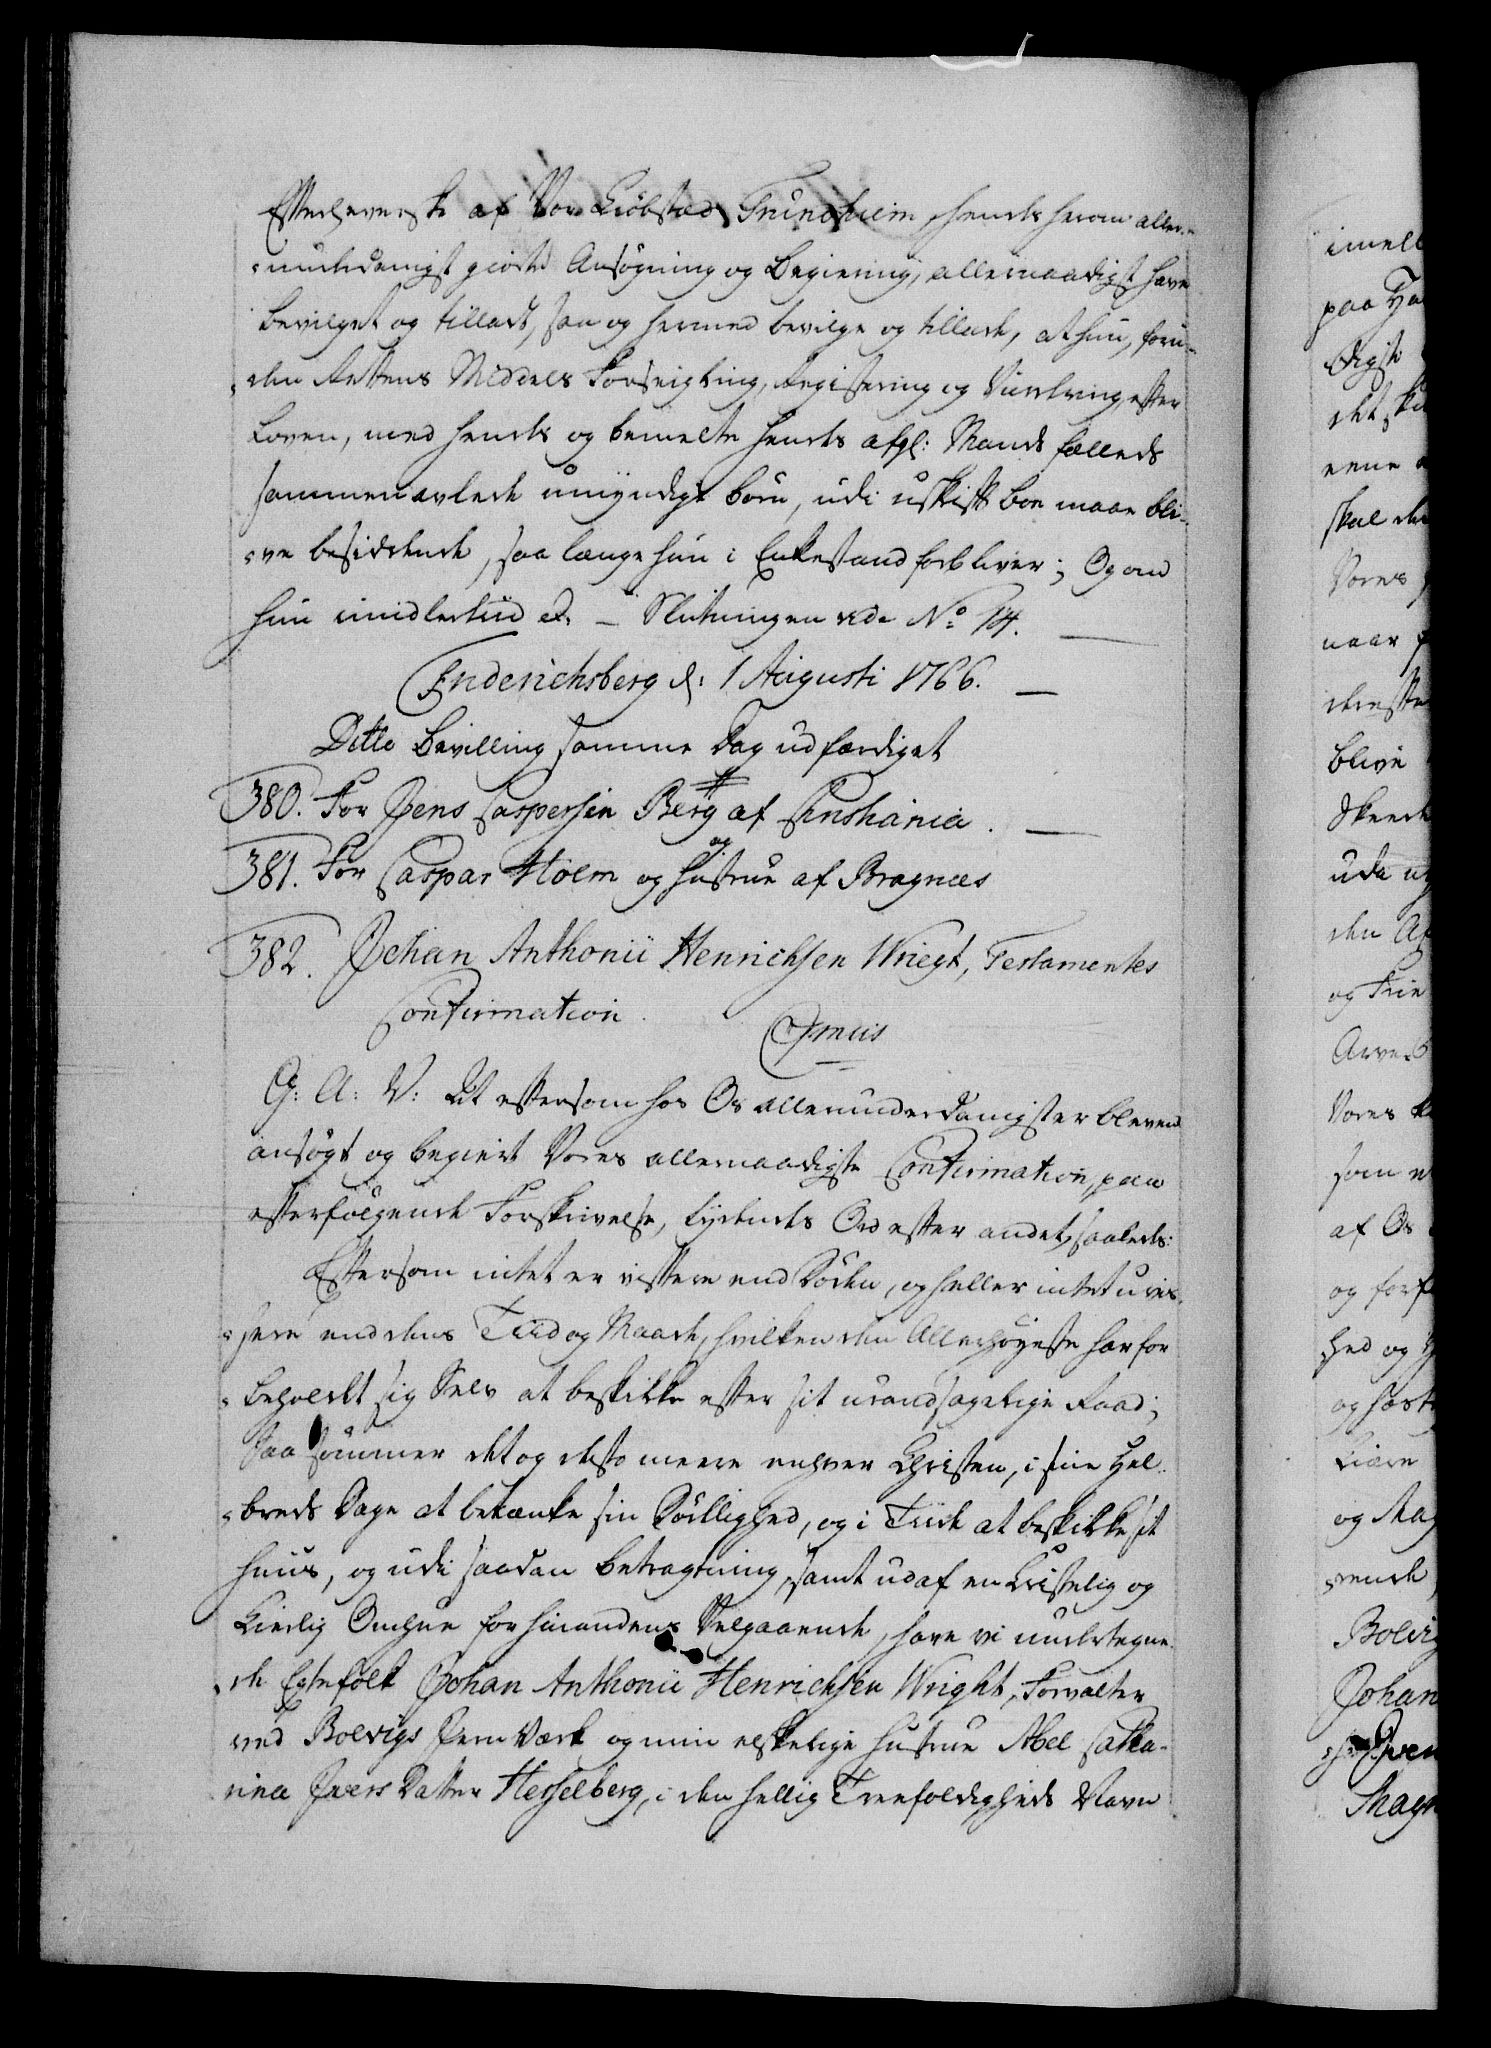 Efterleverske af Vor Kiöbsted Trundhiem, hendes herom aller-
underdanigst giorte Ansøgning og Begiering, allernaadigst have
bevilget og tilladt, saa og hermed bevilge og tillade, at hun, foru-
den Rettens Middels Forseigling, Registering og Vurdering, efter
Loven, med hendes og bemelte hendes afgl: Mands fælleds
sammenavlede umyndige børn, udi uskift Boe maae bli-
ve besiddende, saa længe hun i Enkestand forbliver; Og om
hun imidlertiid &. – Slutningen vide No 14.
Friderichsberg d: 1 Augusti 1766.
Ditto Bevilling samme Dag udfærdiget
380. For Jens Caspersen Berg af Christiania.
381. For Caspar Holm og Hustrue af Bragnæs
382. Johan Anthonii Henrichsen Wriegt, Testamentes
Confirmation.
G: A: V: At eftersom hos Os allerunderdanigst er bleven
ansøgt og begiert Vores allernaadigste Confirmation, paa
efterfølgende Forskrivelse, lydendes Ord efter andet, saaledes:
Eftersom intet er vissere end Døden, og heller intet uvis-
sere end dens Tiid og Maade, hvilken den Allerhøyeste har for
beholdt sig Selv at beskikke efter sit urandsagelige Raad;
Saa sømmer det og desto meere enhver Christen, i sine Hel-
breds Dage at betænke sin Dødlighed, og i Tiide at beskikke sit
Huus, og udi saadan betragtning, samt udaf en Christelig og
Kierlig Omhue for hinandens Velgaaende, have vi undertegne
de Egtefolk Johan Anthonii Henrichsen Wright, Forvalter
ved Bolvigs Jern Værk og min elskelige Hustrue Abel Catha-
rina Ivers Datter Hesselberg, i den hellig Treefoldigheds Navn
imell
paa
det
skal
Vores
naar
blive
den
og
Vores
som
af Os
og
og
og
Bolvig
Johan